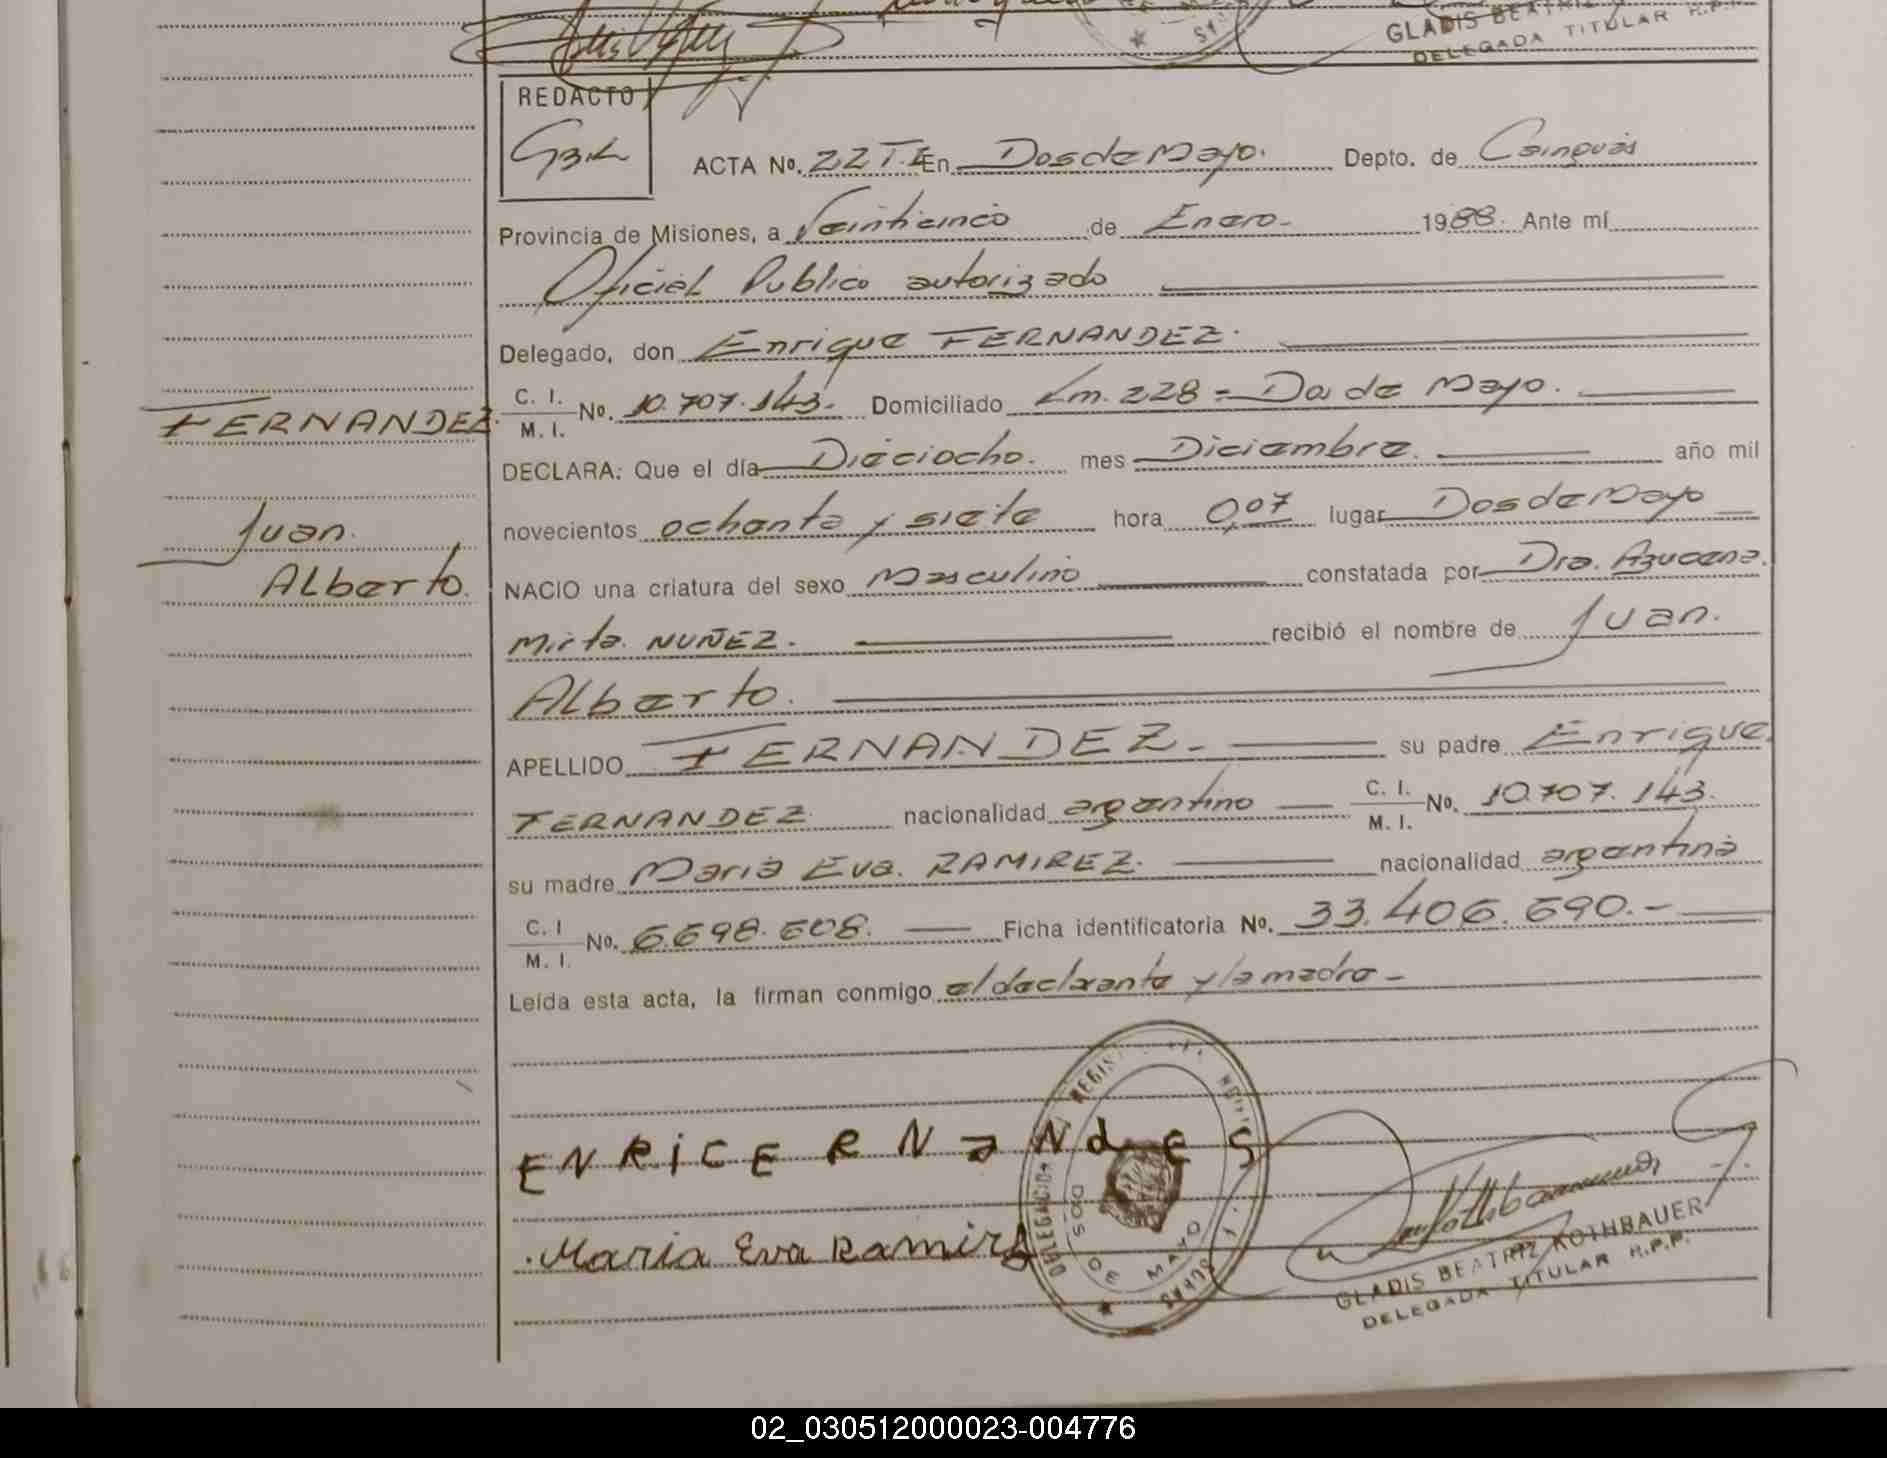 GLADIS BEATRIZ
DELEGADA TITULAR R.P.P.
REDACTO
ACTA No. 22 T.I En Dos de Mayo. Depto. de Cainguás
Provincia de Misiones, a Veinticinco de Enero.- 1988. Ante mí
Oficial Publico autorizado
Delegado, don Enrique FERNANDEZ.
C. I.
M. I. No. 10.707.143.- Domiciliado Km. 228 = Dos de Mayo.
FERNANDEZ.
DECLARA: Que el día Dieciocho. mes Diciembre. año mil
novecientos ochenta y siete hora 0,07 lugar Dos de Mayo
Juan.
Alberto.
NACIO una criatura del sexo Masculino constatada por Dra. Azucena.
Mirta. NUÑEZ. recibió el nombre de Juan.
Alberto.
APELLIDO FERNANDEZ.- su padre Enrique.
FERNANDEZ. nacionalidad argentino C. I.
M. I. No. 10.707.143.
su madre Maria Eva. RAMIREZ. nacionalidad argentina
C. I
M. I. No. 6.698.608. Ficha identificatoria No. 33.406.690.-
Leída esta acta, la firman conmigo el declarante y la madre -
ENRiCE RNaNdES
Maria Eva Ramire
DELEGACION
DOS DE MAYO
GLADIS BEATRIZ ROTHBAUER
DELEGADA TITULAR R.P.P.
02_030512000023-004776